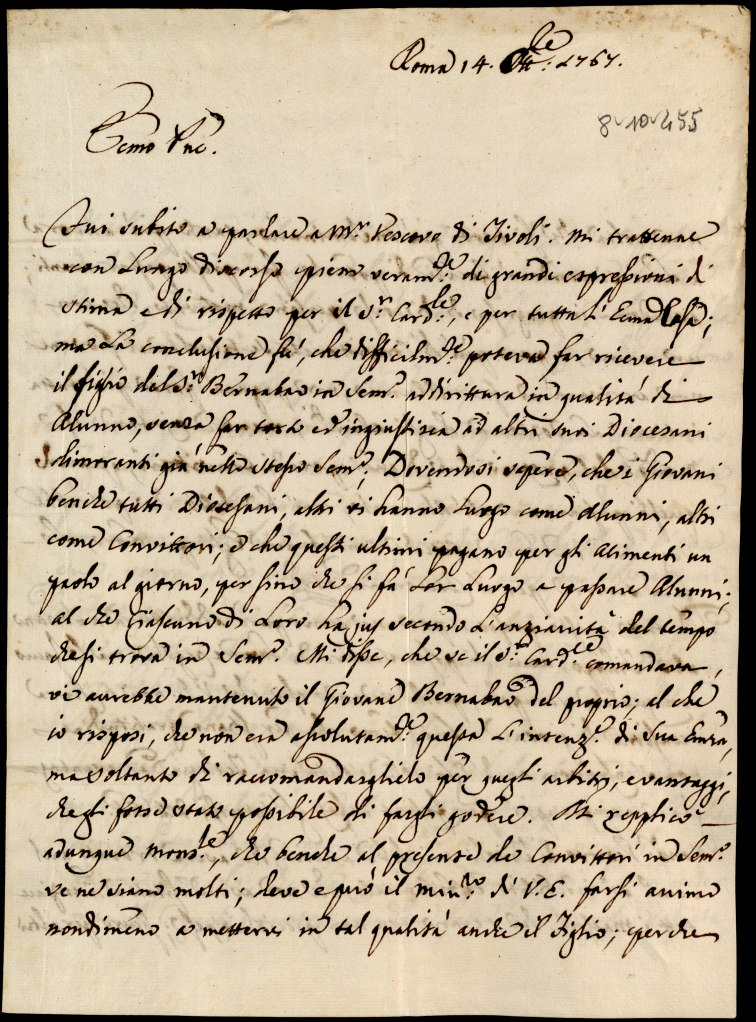 Roma 14. Ott:re 1767.
8-10-455
Ecmo Pne.
Fui subito a parlare a Mr. Vescovo di Tivoli. Mi trattenne
con Lungo discorso pieno veramte. di grandi espressioni di
stima e di rispetto per il Sr. Cardle., e per tutta L'Ecma Casa;
ma La conclusione fù, che difficilmte. poteva far ricevere
il figlio del Sr. Bernabao in Semro. addirittura in qualità di
Alunno, senza far torto ed ingiustizia ad altri suoi Diocesani
dimoranti già nello stesso Semro. Dovendosi sapere, che i Giovani
benche tutti Diocesani, altri vi hanno Luogo come Alunni, altri
come Convittori; e che questi ultimi pagano per gli Alimenti un
paolo al giorno, per sino che si fà Lor Luogo a passare Alunni;
al che Ciascuno di Loro ha jus secondo L'anzianità del tempo
che si trova in Semro. Mi disse, che se il Sr. Cardle. comandava,
vi avrebbe mantenuto il Giovane Bernabao del proprio; al che
io risposi, che non era assolutamte. questa L'intenze. di Sua Emza,
ma soltanto di raccomandarglielo per quegli arbitri, e vantaggi,
che gli fosse stato possibile di fargli godere. Mi repplicò
adunque Monsre., che benche al presente de Convittori in Semro.
ve ne siano molti; deve e può il minro. di V.E. farsi animo
nondimeno a mettervi in tal qualità anche il Figlio; perche